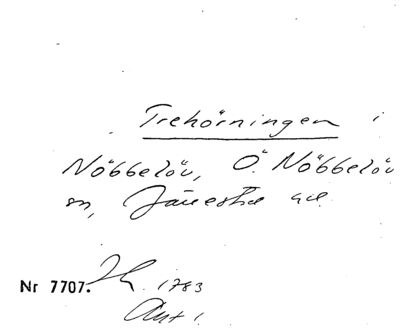 Trehörningen i
Nöbbelöv, Ö. Nöbbelöv
sn, Järrestad
Nr 7707. 1783